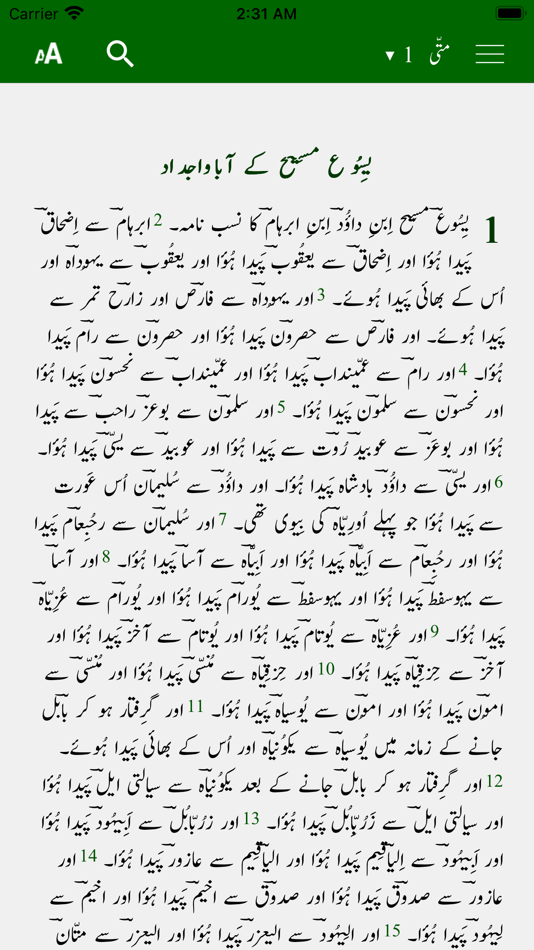 Carrier 2:31 AM
AA متّی 1 ▼
یِسُوع مسِیح کے آباواجداد
1 یِسُوؔع مسِیح اِبنِ داؤُد اِبنِ ابرہامؔ کا نسب نامہ۔ 2 ابرہامؔ سے اِضحاقؔ
پَیدا ہُؤا اور اِضحاقؔ سے یعقُوبؔ پَیدا ہُؤا اور یعقُوبؔ سے یہوداؔہ اور
اُس کے بھائی پَیدا ہُوئے۔ 3 اور یہُوداؔہ سے فارصؔ اور زارؔح تمر سے
پَیدا ہُوئے۔ اور فارصؔ سے حصروؔن پَیدا ہُؤا اور حصروؔن سے راؔم پَیدا
ہُؤا۔ 4 اور راؔم سے عمِّینداؔب پَیدا ہُؤا اور عمِّینداؔب سے نحسوؔن پَیدا ہُؤا
اور نحسوؔن سے سلموؔن پَیدا ہُؤا۔ 5 اور سلموؔن سے بوعزؔ راحبؔ سے پَیدا
ہُؤا اور بوعَزؔ سے عوبیدؔ رُوتؔ سے پَیدا ہُؤا اور عوبیدؔ سے یسّیؔ پَیدا ہُؤا۔
6 اور یسّیؔ سے داؤُدؔ بادشاہ پَیدا ہُؤا۔ اور داؤُدؔ سے سُلیماؔن اُس عَورت
سے پَیدا ہُؤا جو پہلے اُورِیّاؔہ کی بِیوی تھی۔ 7 اور سُلیماؔن سے رحُبِعاؔم پَیدا
ہُؤا اور رحُبِعاؔم سے اَبیّاؔہ پَیدا ہُؤا اور اَبیّاؔہ سے آساؔ پَیدا ہُؤا۔ 8 اور آساؔ
سے یہوسفطؔ پَیدا ہُؤا اور یہوسفطؔ سے یُوراؔم پَیدا ہُؤا اور یُوراؔم سے عُزیّاؔہ
پَیدا ہُؤا۔ 9 اور عُزیّاؔہ سے یُوتاؔم پَیدا ہُؤا اور یُوتاؔم سے آخزؔ پَیدا ہُؤا اور
آخزؔ سے حِزقِیاؔہ پَیدا ہُؤا۔ 10 اور حِزقِیاؔہ سے مُنسّیؔ پَیدا ہُؤا اور مُنسّیؔ سے
اموؔن پَیدا ہُؤا اور اموؔن سے یُوسیاؔہ پَیدا ہُؤا۔ 11 اور گرِفتار ہو کر بابلؔ
جانے کے زمانہ میں یُوسیاؔہ سے یکوُنیاؔہ اور اُس کے بھائی پَیدا ہُوئے۔
12 اور گرِفتار ہو کر بابلؔ جانے کے بعد یکوُنیاؔہ سے سیالتی ایلؔ پَیدا ہُؤا
اور سیالتی ایلؔ سے زَرُبّابُلؔ پَیدا ہُؤا۔ 13 اور زرُبّابُلؔ سے اَبِیہُودؔ پَیدا ہُؤا
اور اَبِیہُودؔ سے اِلیاقِیمؔ پَیدا ہُؤا اور الیاقِیمؔ سے عازورؔ پَیدا ہُؤا۔ 14 اور
عازورؔ سے صدوقؔ پَیدا ہُؤا اور صدوقؔ سے اخیمؔ پَیدا ہُؤا اور اخیمؔ سے
لِیہُودؔ پَیدا ہُؤا۔ 15 اور الیہُودؔ سے الیعزرؔ پَیدا ہُؤا اور الیعزرؔ سے متّانؔ